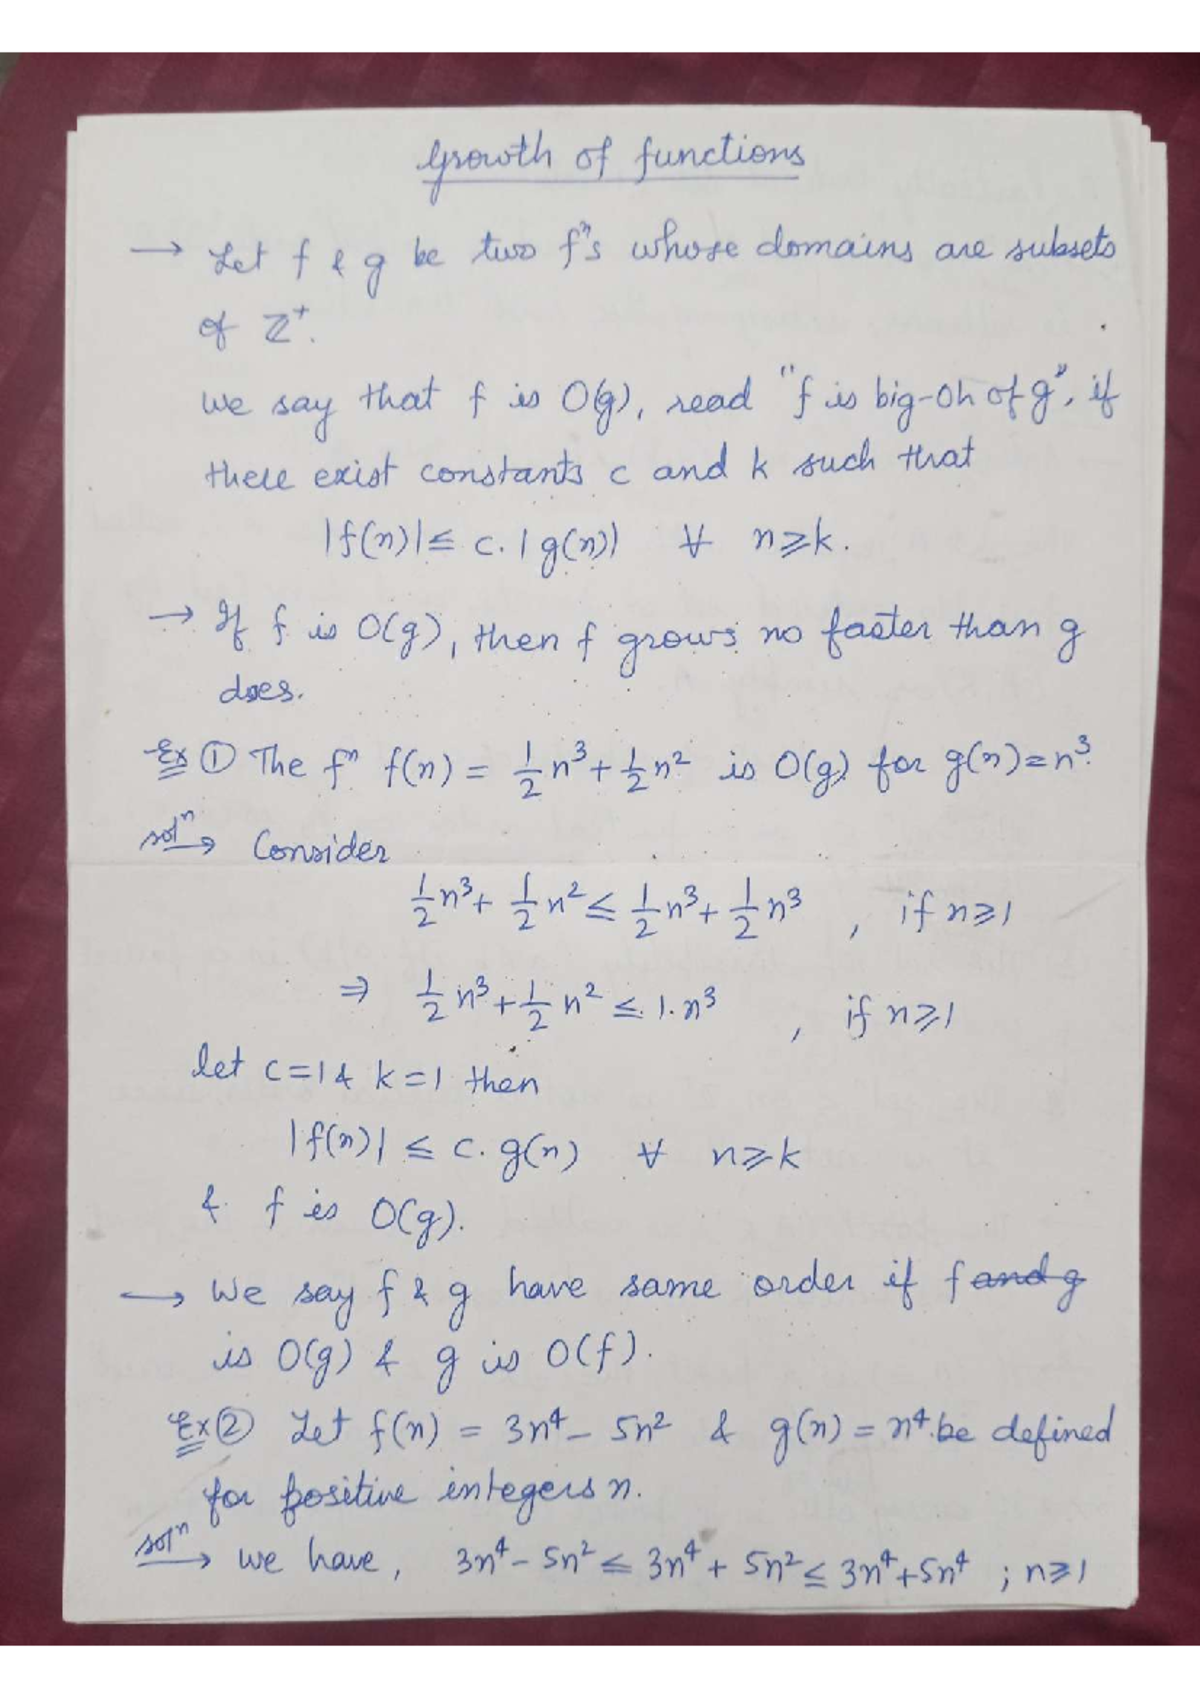 Growth of functions
→ Let f & g be two fⁿs whose domains are subsets
of ℤ⁺.
We say that f is O(g), read "f is big-Oh of g", if
there exist constants c and k such that
|f(n)| ≤ c. |g(n)| ∀ n ≥ k.
→ If f is O(g), then f grows no faster than g
does.
Ex ① The fⁿ f(n) = 1/2 n³ + 1/2 n² is O(g) for g(n) = n³.
solⁿ → Consider
1/2 n³ + 1/2 n² ≤ 1/2 n³ + 1/2 n³ , if n ≥ 1
⇒ 1/2 n³ + 1/2 n² ≤ 1. n³ , if n ≥ 1
let c = 1 & k = 1 then
|f(n)| ≤ c. g(n) ∀ n ≥ k
& f is O(g).
→ We say f & g have same order if f ~~and g~~
is O(g) & g is O(f).
Ex ② Let f(n) = 3n⁴ - 5n² & g(n) = n⁴ be defined
for positive integers n.
solⁿ → we have, 3n⁴ - 5n² ≤ 3n⁴ + 5n² ≤ 3n⁴ + 5n⁴ ; n ≥ 1